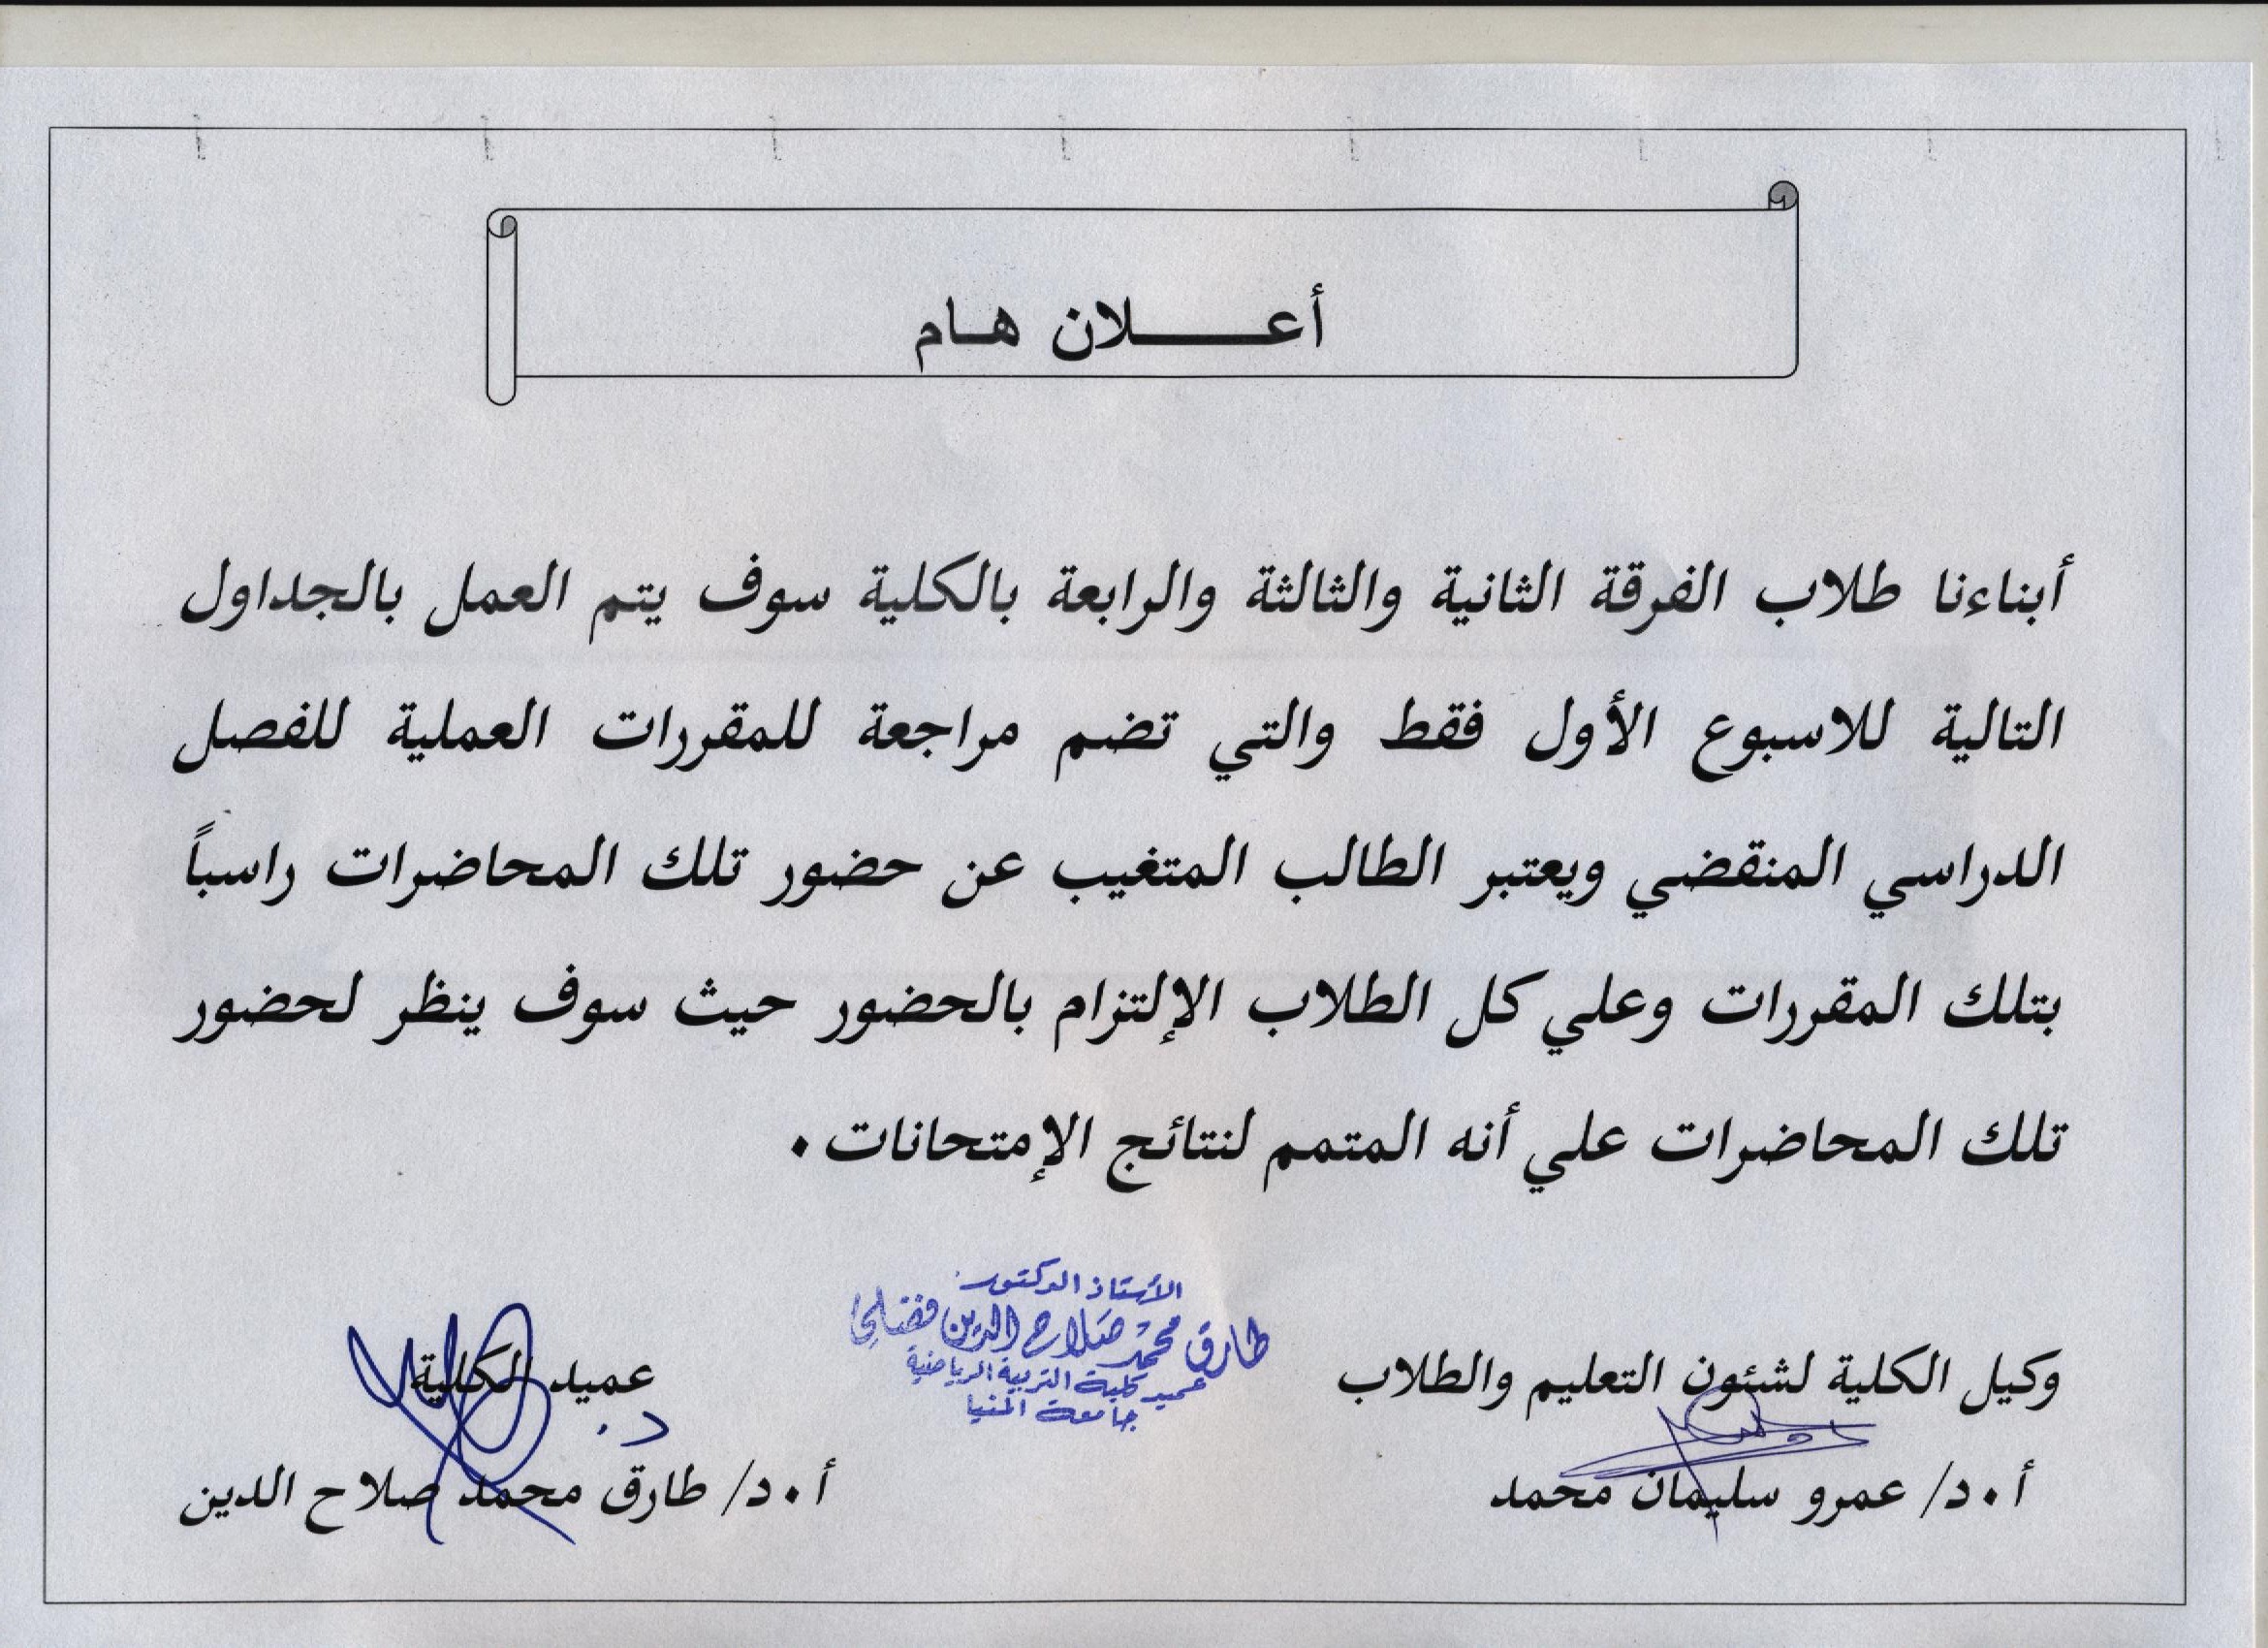 أعـــــلان هـام
أبناءنا طلاب الفرقة الثانية والثالثة والرابعة بالكلية سوف يتم العمل بالجداول
التالية للاسبوع الأول فقط والتي تضم مراجعة للمقررات العملية للفصل
الدراسي المنقضي ويعتبر الطالب المتغيب عن حضور تلك المحاضرات راسباً
بتلك المقررات وعلي كل الطلاب الإلتزام بالحضور حيث سوف ينظر لحضور
تلك المحاضرات علي أنه المتمم لنتائج الإمتحانات ٠
وكيل الكلية لشئون التعليم والطلاب
أ ٠ د/ عمرو سليمان محمد
الأستاذ الدكتور
طارق محمد صلاح الدين فضلي
عميد كلية التربية الرياضية
جامعة المنيا
عميد الكلية
أ ٠ د/ طارق محمد صلاح الدين